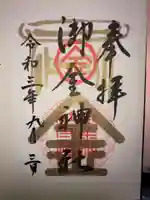 奉拝
御金神社
令和三年九月三日